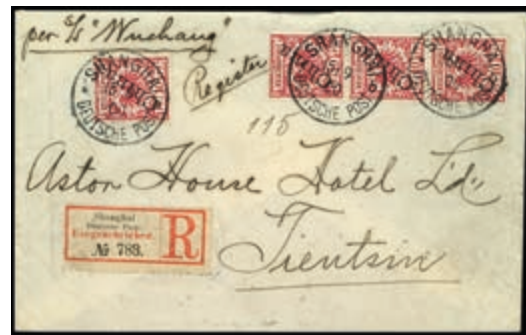 per S/S "Wuchang"
Register
SHANGHAI
DEUTSCHE POST
SHANGHAI
DEUTSCHE POST
SHANGHAI
DEUTSCHE POST
115
Aston House Hotel Ld.
Tientsin
Shanghai
Deutsche Post.
Eingeschrieben.
№ 783.
R